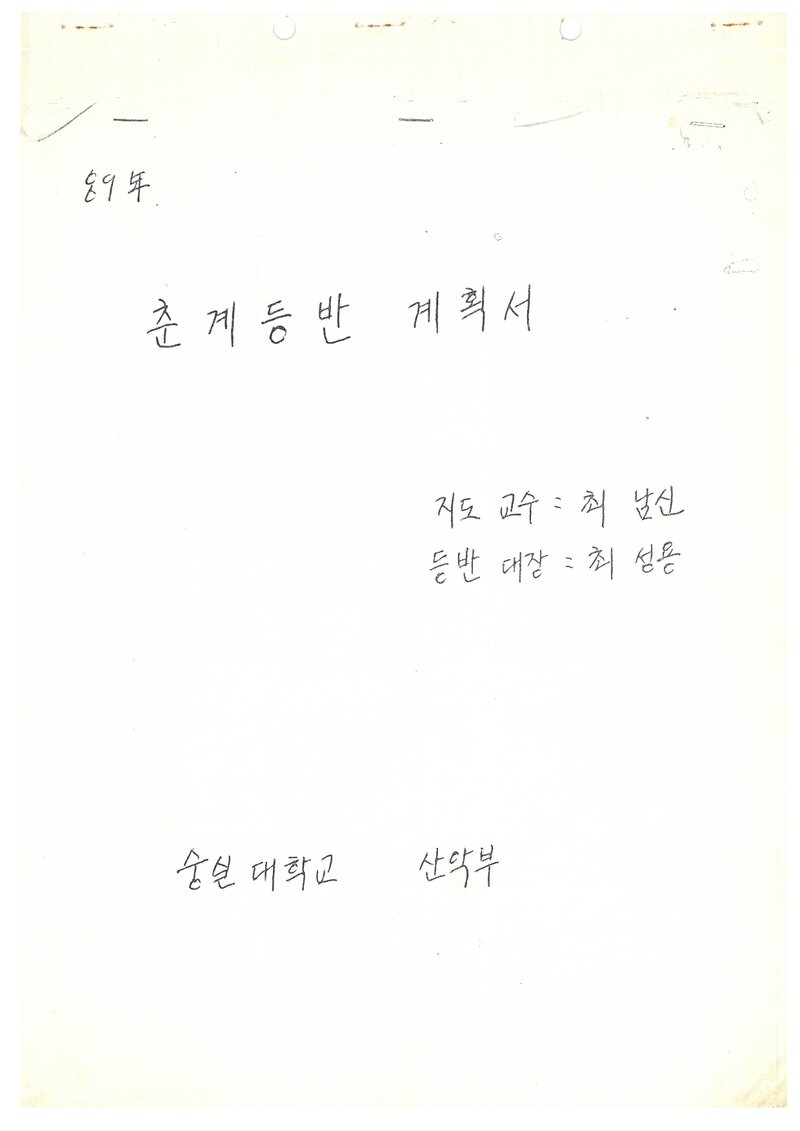 89年
춘계등반 계획서
지도 교수 : 최 남신
등반 대장 : 최 성용
숭실 대학교 산악부